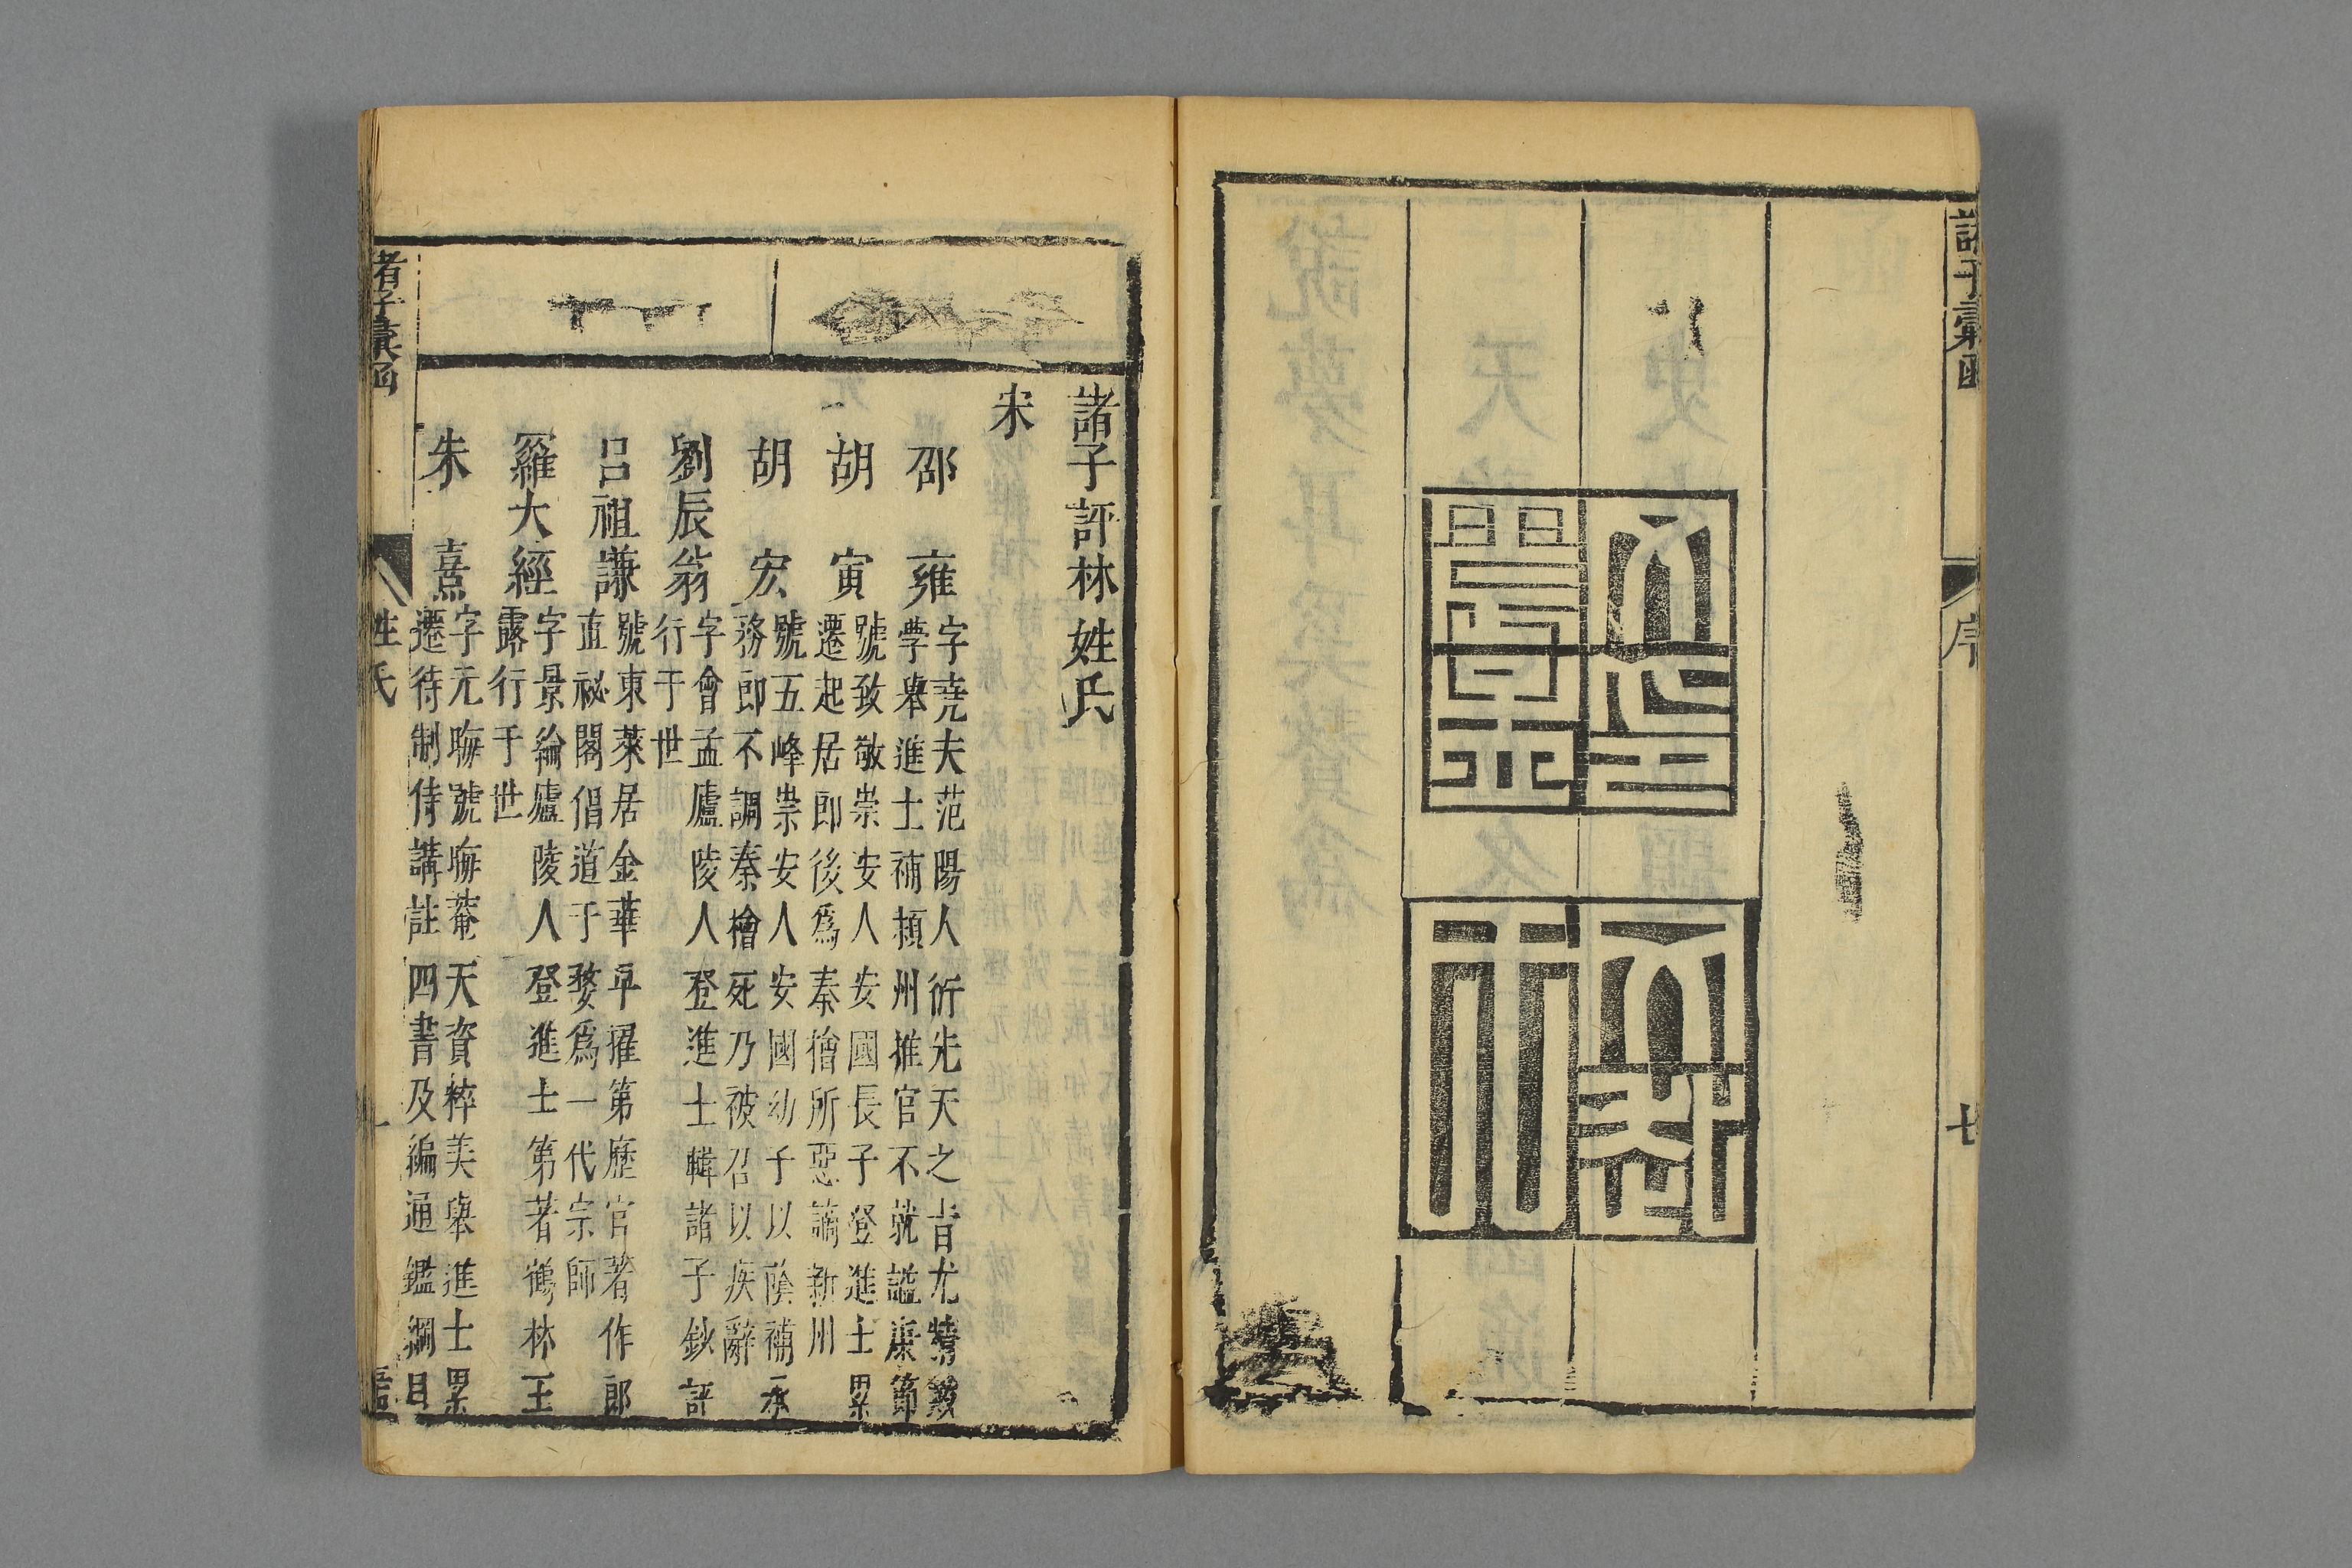 諸子彙函
序
七
諸子評林姓氏
宋
邵雍
字堯夫范陽人衍先天之旨尤精數
學舉進士補潁州推官不就謚康節
胡寅
號致敬崇安人安國長子登進士累
遷起居郎後為秦檜所惡謫新州
胡宏
號五峰崇安人安國幼子以蔭補承
務郎不調秦檜死乃被召以疾辭
劉辰翁
字會孟廬陵人登進士輯諸子鈔評
行于世
呂祖謙
號東萊居金華卒擢第歷官著作郎
直祕閣倡道于婺為一代宗師
羅大經
字景綸廬陵人登進士第著鶴林玉
露行于世
朱熹
字元晦號晦菴天資粹美舉進士累
遷待制侍講註四書及編通鑑綱目
諸子彙函
姓氏
一